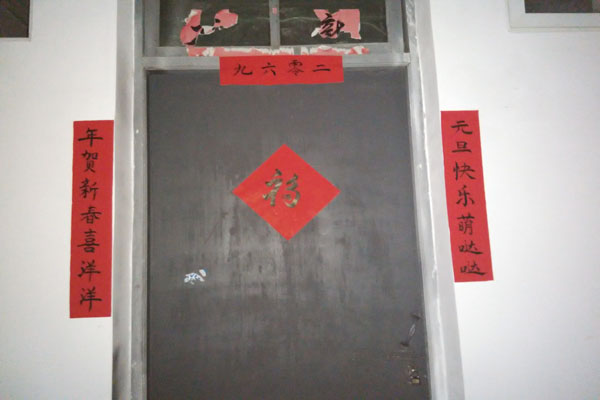 九六零二
元旦快乐萌哒哒
年贺新春喜洋洋
福